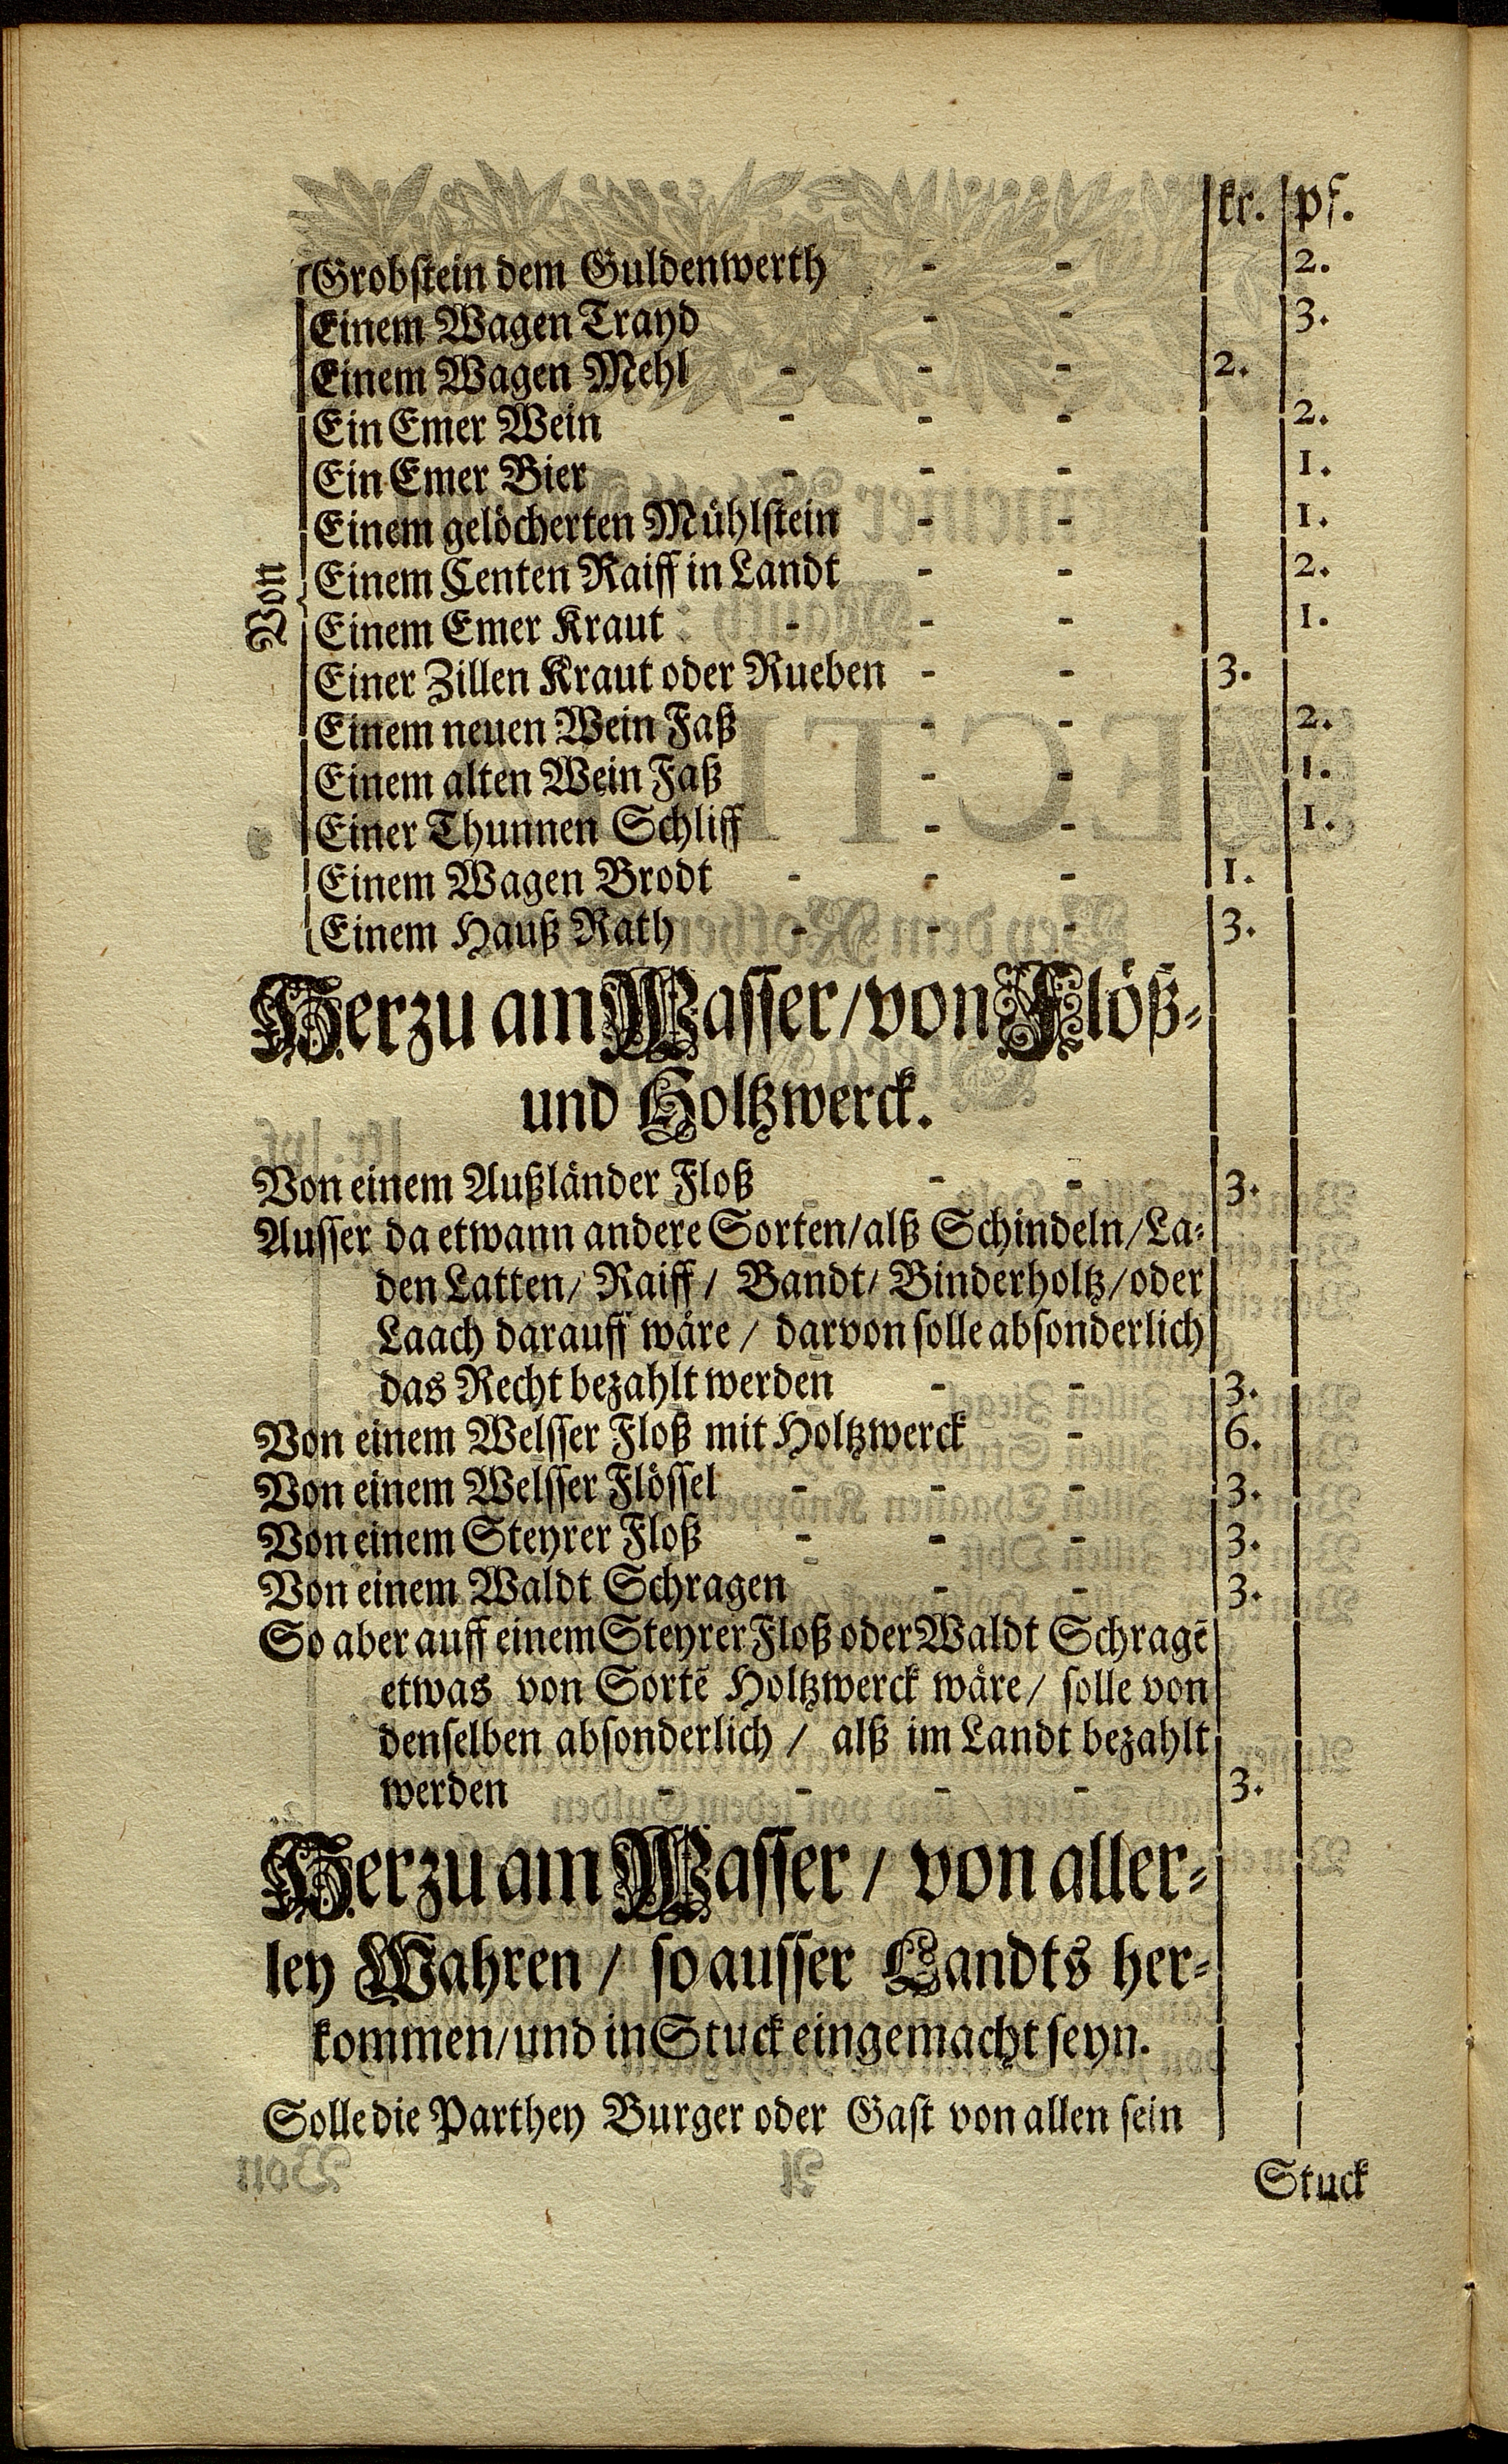 kr. pf.
Grobstein dem Guldenwerth - - 2.
Einem Wagen Trayd - - 3.
Einem Wagen Mehl - - - 2.
Ein Emer Wein - - - 2.
Ein Emer Bier - - - 1.
Einem gelöcherten Mühlstein - - 1.
Von Einem Centen Raiff in Landt - - 2.
Einem Emer Kraut - - - 1.
Einer Zillen Kraut oder Rueben - - 3.
Einem neuen Wein Faß - - 2.
Einem alten Wein Faß - - 1.
Einer Thunnen Schliff - - 1.
Einem Wagen Brodt - - - 1.
Einem Hauß Rath - - - 3.
Herzu am Wasser/von Flöß-
und Holtzwerck.
Von einem Außländer Floß - - 3.
Ausser da etwann andere Sorten/alß Schindeln/La-
den Latten/ Raiff/ Bandt/ Binderholtz/oder
Laach darauff wäre / darvon solle absonderlich
das Recht bezahlt werden - - 3.
Von einem Welsser Floß mit Holtzwerck - 6.
Von einem Welsser Flössel - - - 3.
Von einem Steyrer Floß - - - 3.
Von einem Waldt Schragen - - 3.
So aber auff einem Steyrer Floß oder Waldt Schragē
etwas von Sortē Holtzwerck wäre/ solle von
denselben absonderlich / alß im Landt bezahlt
werden - - - - 3.
Herzu am Wasser / von aller-
ley Wahren / so ausser Landts her-
kommen/und in Stuck eingemacht seyn.
Solle die Parthey Burger oder Gast von allen sein
Stuck